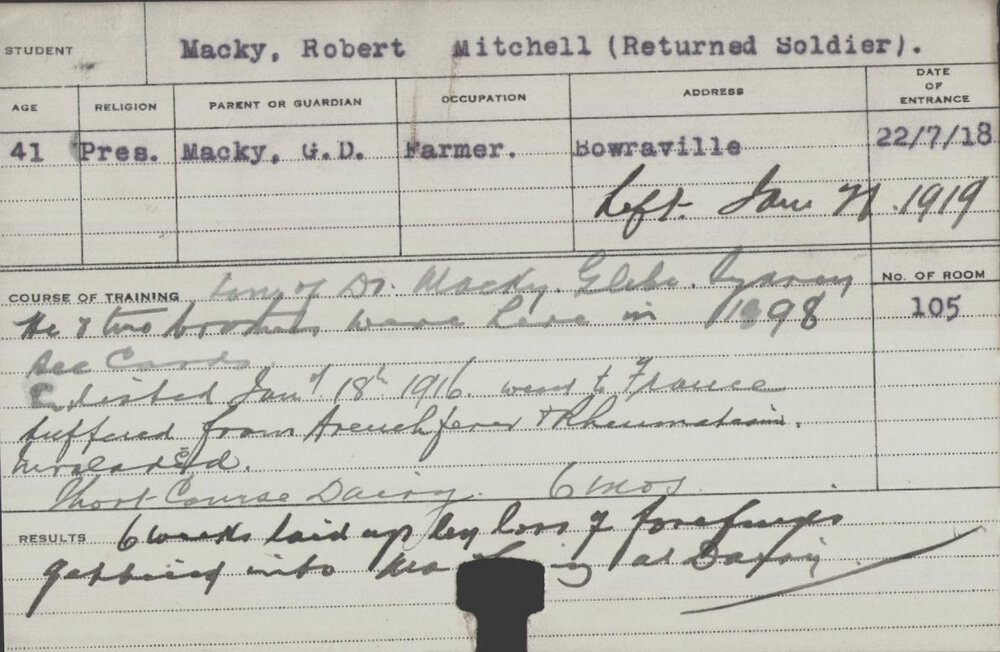 STUDENT Macky, Robert Mitchell (Returned Soldier).
AGE RELIGION PARENT OR GUARDIAN OCCUPATION ADDRESS DATE OF ENTRANCE
41 Pres. Macky, G.D. Farmer. Bowraville 22/7/18
Left. Jan 1919
COURSE OF TRAINING of Dr. Macky. Glebe. No. OF ROOM
He & two brothers were here in 1898 105
See Cards
Enlisted Jany 18th 1916. went to France
suffered from trench fever & Rheumatism.
Invalided.
Short Course Dairy. 6 mos
RESULTS 6 weeks laid up by loss of
into at Dairy